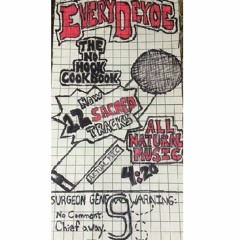 EVERYDEYOE
THE
NO
HOOK
COOKBOOK
NOW
12 SACRED
TRACKS
ALL
NATURAL
MUSIC
4:20
SURGEON GENERAL WARNING:
No Comment
Chief away.
9